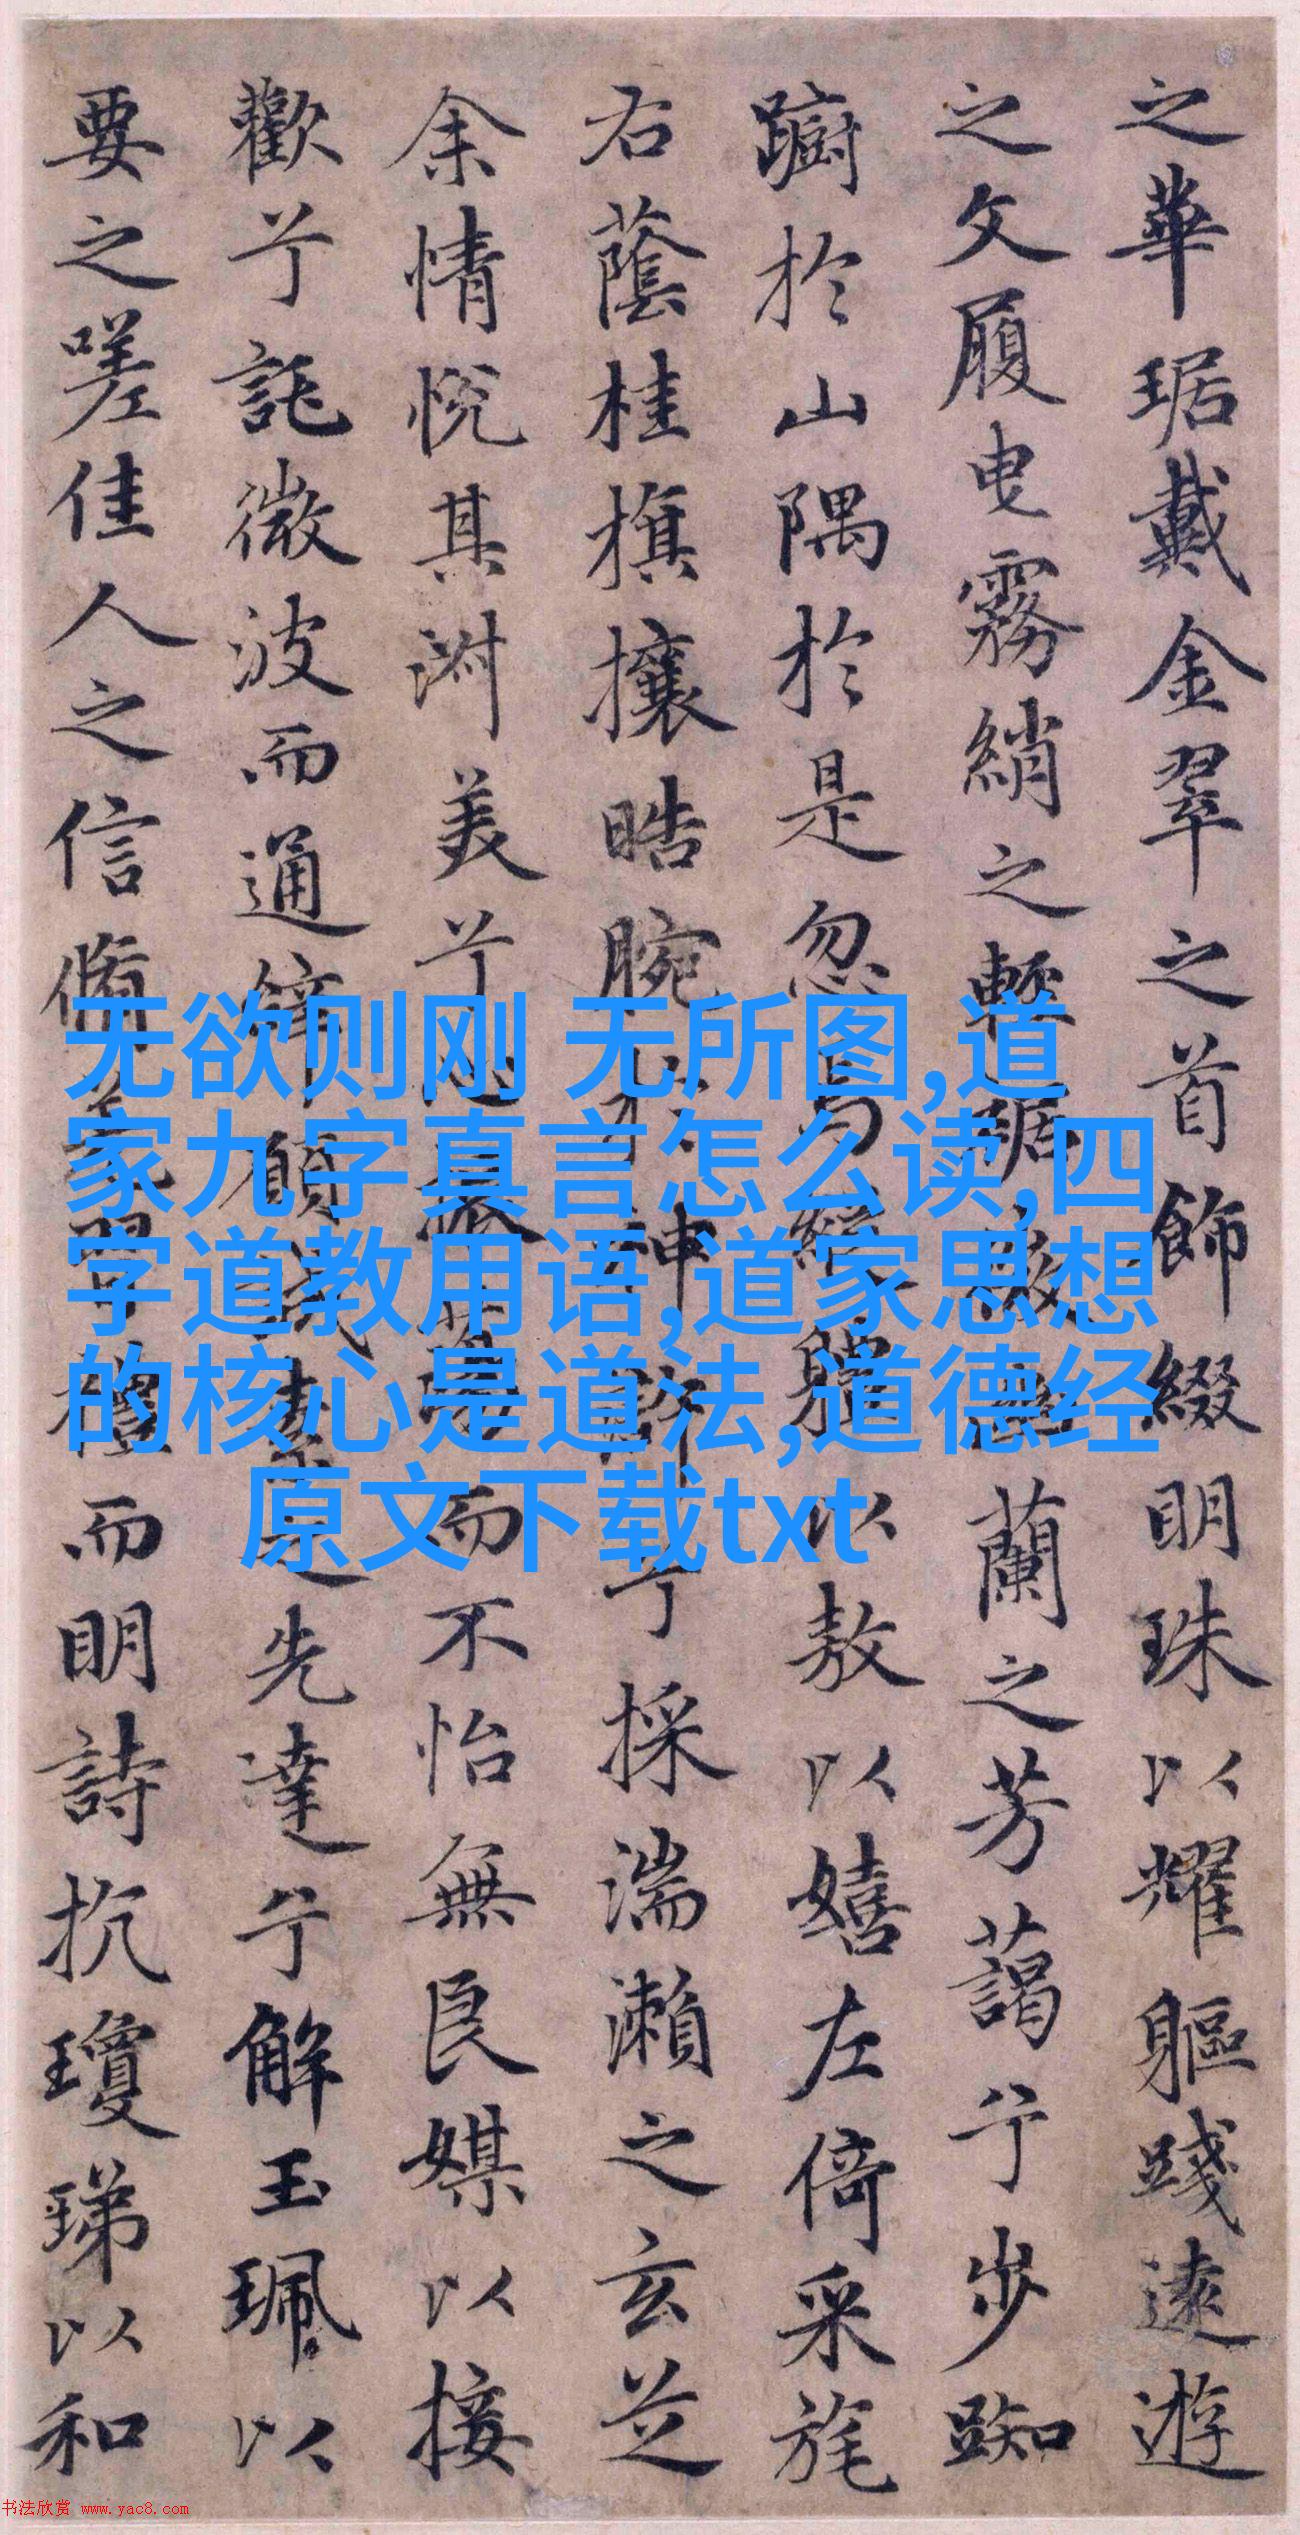 之華琚戴金翠之首飾綴明珠以耀軀踐遠遊
之文履曳霧綃之輕裾微幽蘭之芳藹兮步踟
躕於山隅於是忽焉縱體以敖以嬉左倚采旄
右蔭桂旗攘晧腕於神滸兮採湍瀨之玄芝
余情悅其淑美兮心振蕩而不怡無良媒以接
歡兮託微波而通辭願誠素之先達兮解玉珮以
要之嗟佳人之信脩羌習禮而明詩抗瓊珶以和
无欲则刚 无所图,道
家九字真言怎么读,四
字道教用语,道家思想
的核心是道法,道德经
原文下载txt
书法欣赏 www.yac8.com